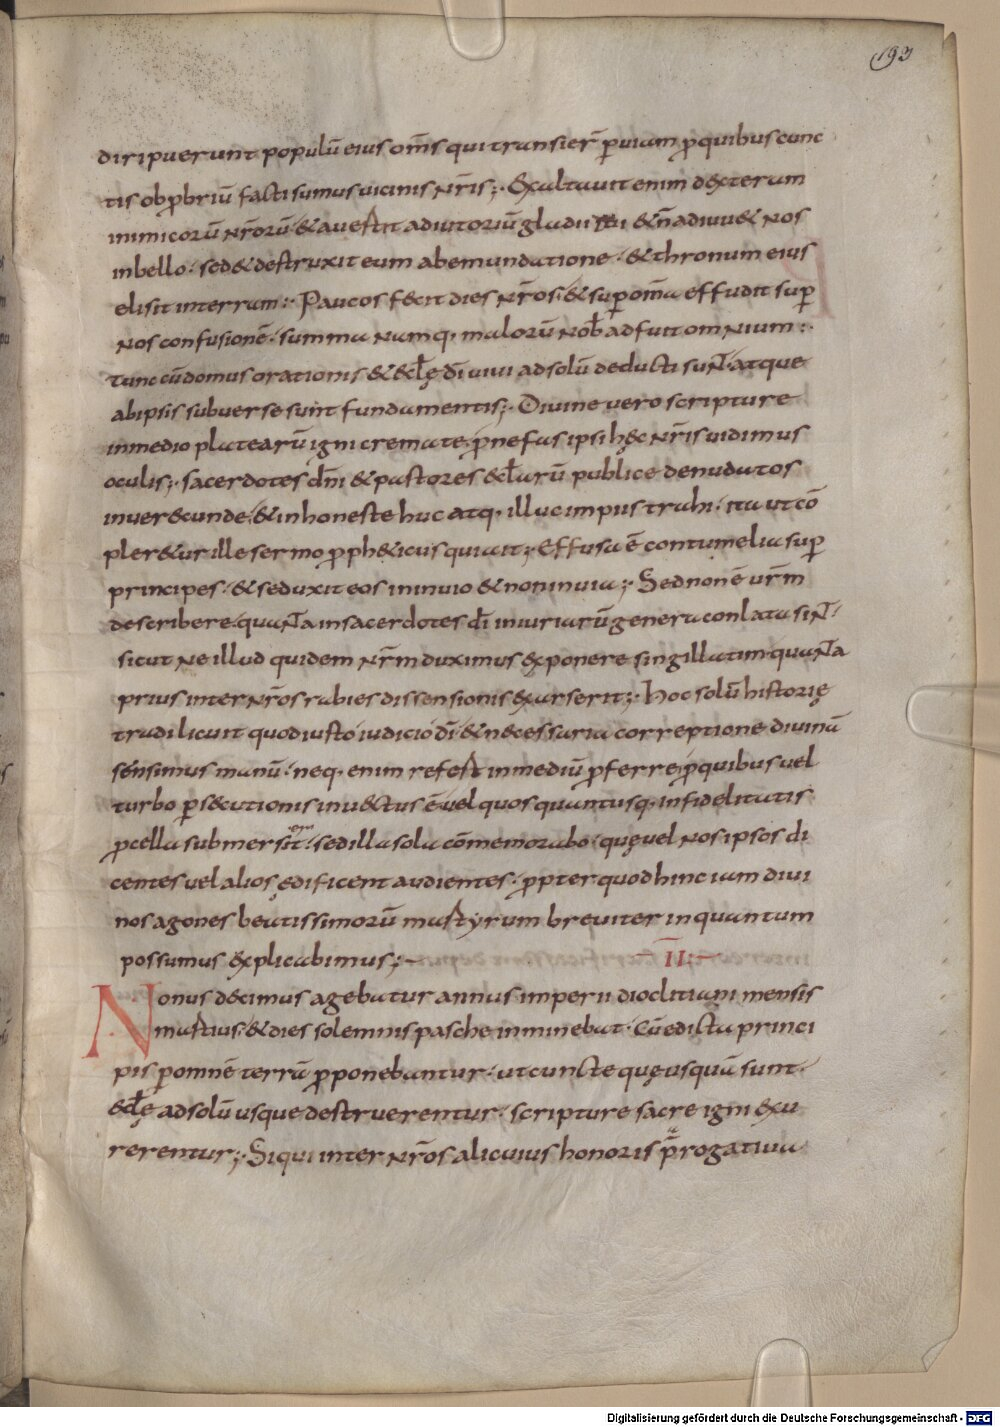 193
diripuerunt populū eius om̄s qui transier̄ ꝑ uiam ꝓ quibus cunc
tis obꝓbriū facti sumus uicinis nr̄is;. Exaltauit enim dexteram
inimicorū nr̄orū & auertit adiutoriū gladii & n̄ adiuu& nos
in bello. sed & destruxit eum ab emundatione. & thronum eius
elisit in terram:. Paucos fecit dies nr̄os. & suꝑ om̄a effudit suꝑ
nos confusionē. summa namq. malorū nob adfuit omnium:.
tunc cū domus orationis & eccłę dī uiui ad solū deducti sunt. atque
ab ipsis subuerse sunt fundamentis;. Diuine uero scripture
in medio platearū igni cremate. ꝓ nefas ipsi hęc nr̄is uidimus
oculis;. sacerdotes dn̄i & pastores eccłarū publice denudatos
inuerecunde. & inhoneste huc atq. illuc impus trahi. ita ut cō
pler&ur ille sermo ꝓph&icus qui ait; Effusa ē contumelia suꝑ
principes. & seduxit eos in inuio & non in uia;. Sed non ē ur̄m
describere. quanta in sacerdotes dī iniuriarū genera conlata sint.
sicut ne illud quidem nr̄m duximus exponere singillatim. quanta
prius inter nr̄os rabies dissensionis exarserit;. Hoc solū historię
tradi licuit quod iusto iudicio dī & necessaria correptione diuinā
sensimus manū. neq. enim refert in mediū ꝓferre. ꝓ quibus uel
turbo ꝑsecutionis inuectus ē uel quos quantusq. infidelitatis
ꝓcella submersit. sed illa sola cōmemorabo. quę uel nos ipsos di
centes uel alios ędificent audientes. ꝓpter quod hinc iam diui
nos agones beatissimorū martyrum breuiter in quantum
possumus explicabimus;. II:
Nonus decimus agebatur annus imperii dioclitiani mensis
martius. & dies solemnis pasche inminebat. Cū edicta princi
pis ꝑ omnē terrā ꝓponebantur. ut cuncte quę usquā sunt.
eccłę ad solū usque destruerentur. scripture sacre igni exu
rerentur;. Siqui inter nr̄os alicuius honoris p̄rogatiua
Digitalisierung gefördert durch die Deutsche Forschungsgemeinschaft - DFG